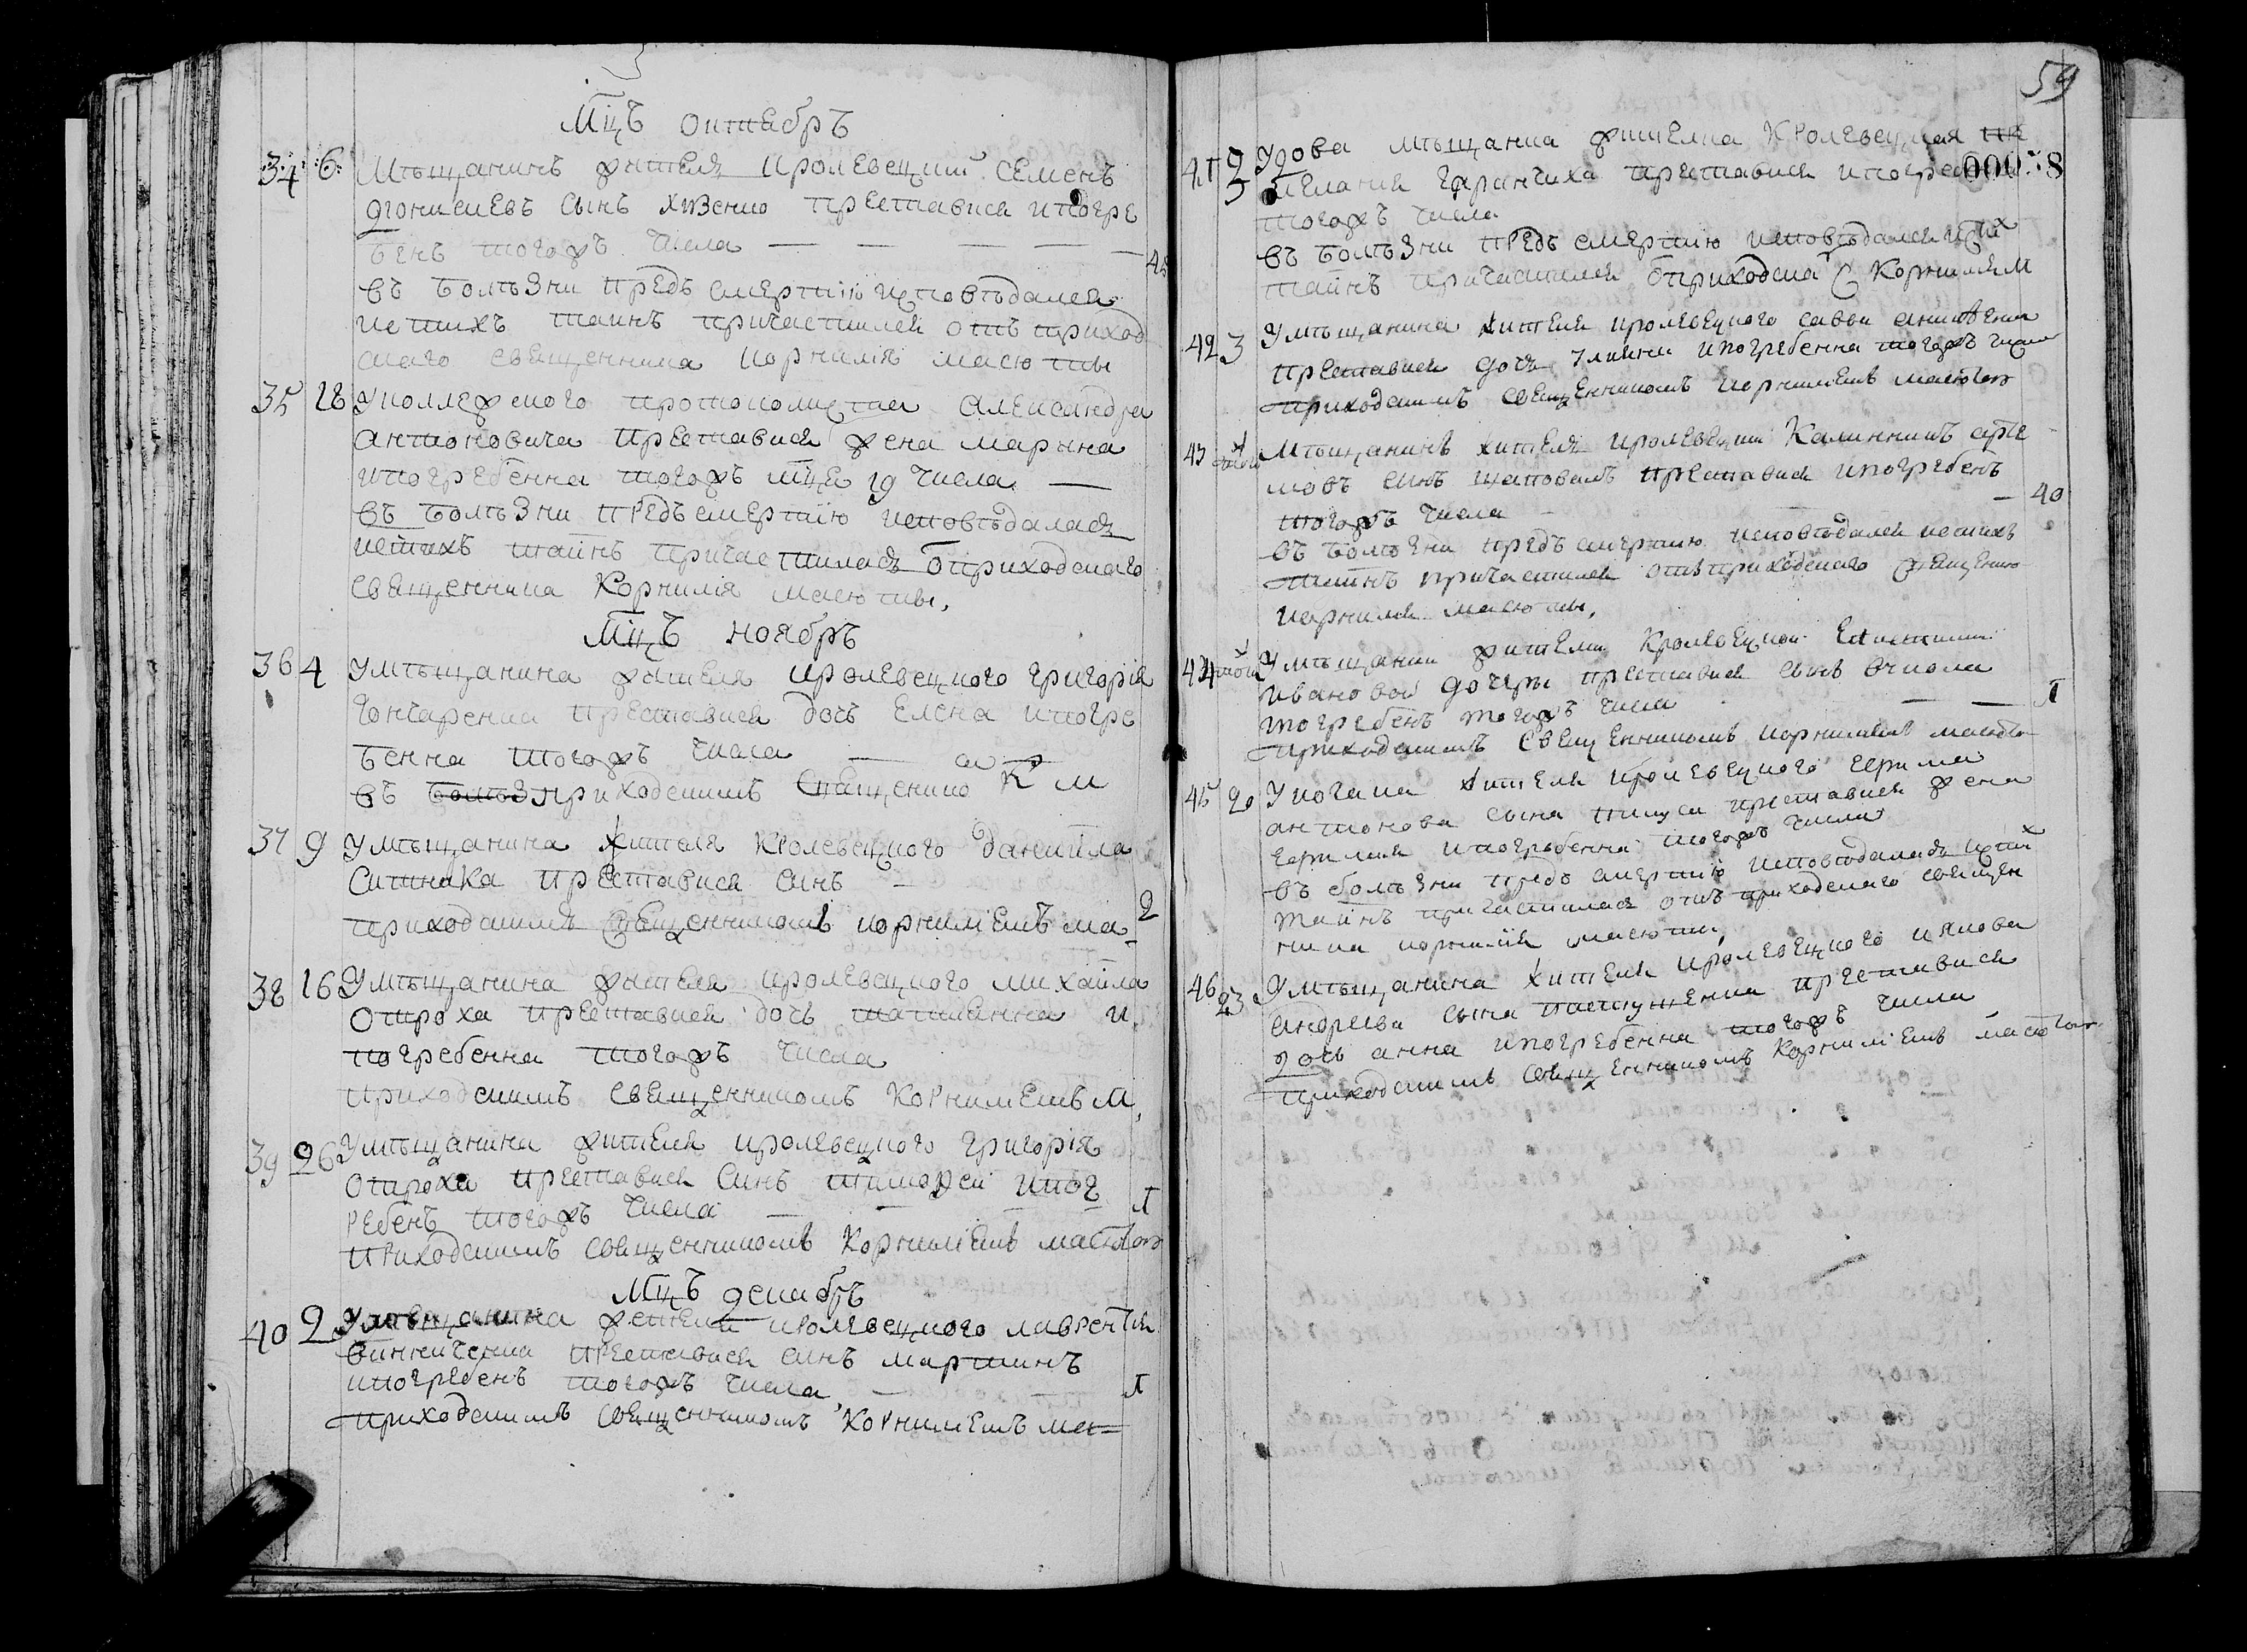 Мцъ октабръ
34 6 Мѣщанинъ жител кролевецкий Семенъ
дгонисиевъ сынъ хизенко преставися ипогре
бенъ тогожъ числа
45
въ болѣзни предъ смертию исповѣдался
истихъ таинъ причастился отъ приход
скаго священника корнилія масюты
35 18 Уколлежского протоколиста александра
антоновича преставися жена марина
ипогребенна тогожъ мца 19 числа
въ болѣзни предъ смертию исповѣдалась
истихъ таинъ причастилась ѿприходскаго
священника Корнилія масюты,
Мцъ ноябръ
36 4 Умѣщанина жителя кролевецкого григорія
Гончаренка преставися дочь Елена ипогре
бенна тогожъ числа
въ приходскимъ священико К м
37 9 Умѣщанина жителя кролевецкого даниила
Ситника преставися синъ
2
приходскимъ священникомъ корниліемъ ма
38 16 Умѣщанина жителя кролевецкого михайла
Отроха преставися дочь татианна и
погребенна тогожъ числа
приходскимъ священникомъ Корнилиемъ М,
39 26 Умѣщанина жителя кролевецкого григорія
Отроха преставися Синъ тимофей ипог
ребенъ тогожъ числа 1
приходскимъ священникомъ Корниліемъ масютою
Мцъ декабръ
40 2 Умѣщанина жителя кролевецкого лаврентия
винниченка преставися синъ мартинъ
ипогребенъ тогожъ числа, 1
приходскимъ священникомъ Корнилиемъ ма
59
41 2 Удова мѣщанка жителка Кролевецкая
мелания преставися ипогре 00058
тогожъ числа
въ болѣзни предъ смертию исповѣдалея истих
таинъ причастилея ѿприходска С Корнилия М
42 3 Умѣщанина жителя кролевецкого савви
преставися дочъ ипогребенна тогожъ числа
приходскимъ священникомъ корнилиемъ масютою
43 Мѣщанинъ жителя кролевецкий Калинникъ арте
мовъ синъ щаповалъ преставися ипогребенъ
тогожъ числа 40
въ болѣзни предъ смертию исповѣдался истихъ
таинъ причастился отъ приходскаго священо
корнилия масюты,
44 Умѣщанки жителки Кролевецкой
ивановой дочери преставися синъ
погребенъ тогожъ числа 1
приходскимъ священникомъ корнилиемъ масюто
45 20 Укозака жителя кролевецкого
антонова сына преставися жена
ипогребенна тогожъ числа
въ болѣзни предъ смертию исповѣдалась истих
таинъ причастилася отъ приходскаго священ
ника корнилия масюты,
46 23 Умѣщанина жителя кролевецкого иякова
андреева сына пастушенка преставися
дочь анна ипогребенна тогожъ числа
приходскимъ священникомъ Корнилиемъ масютою